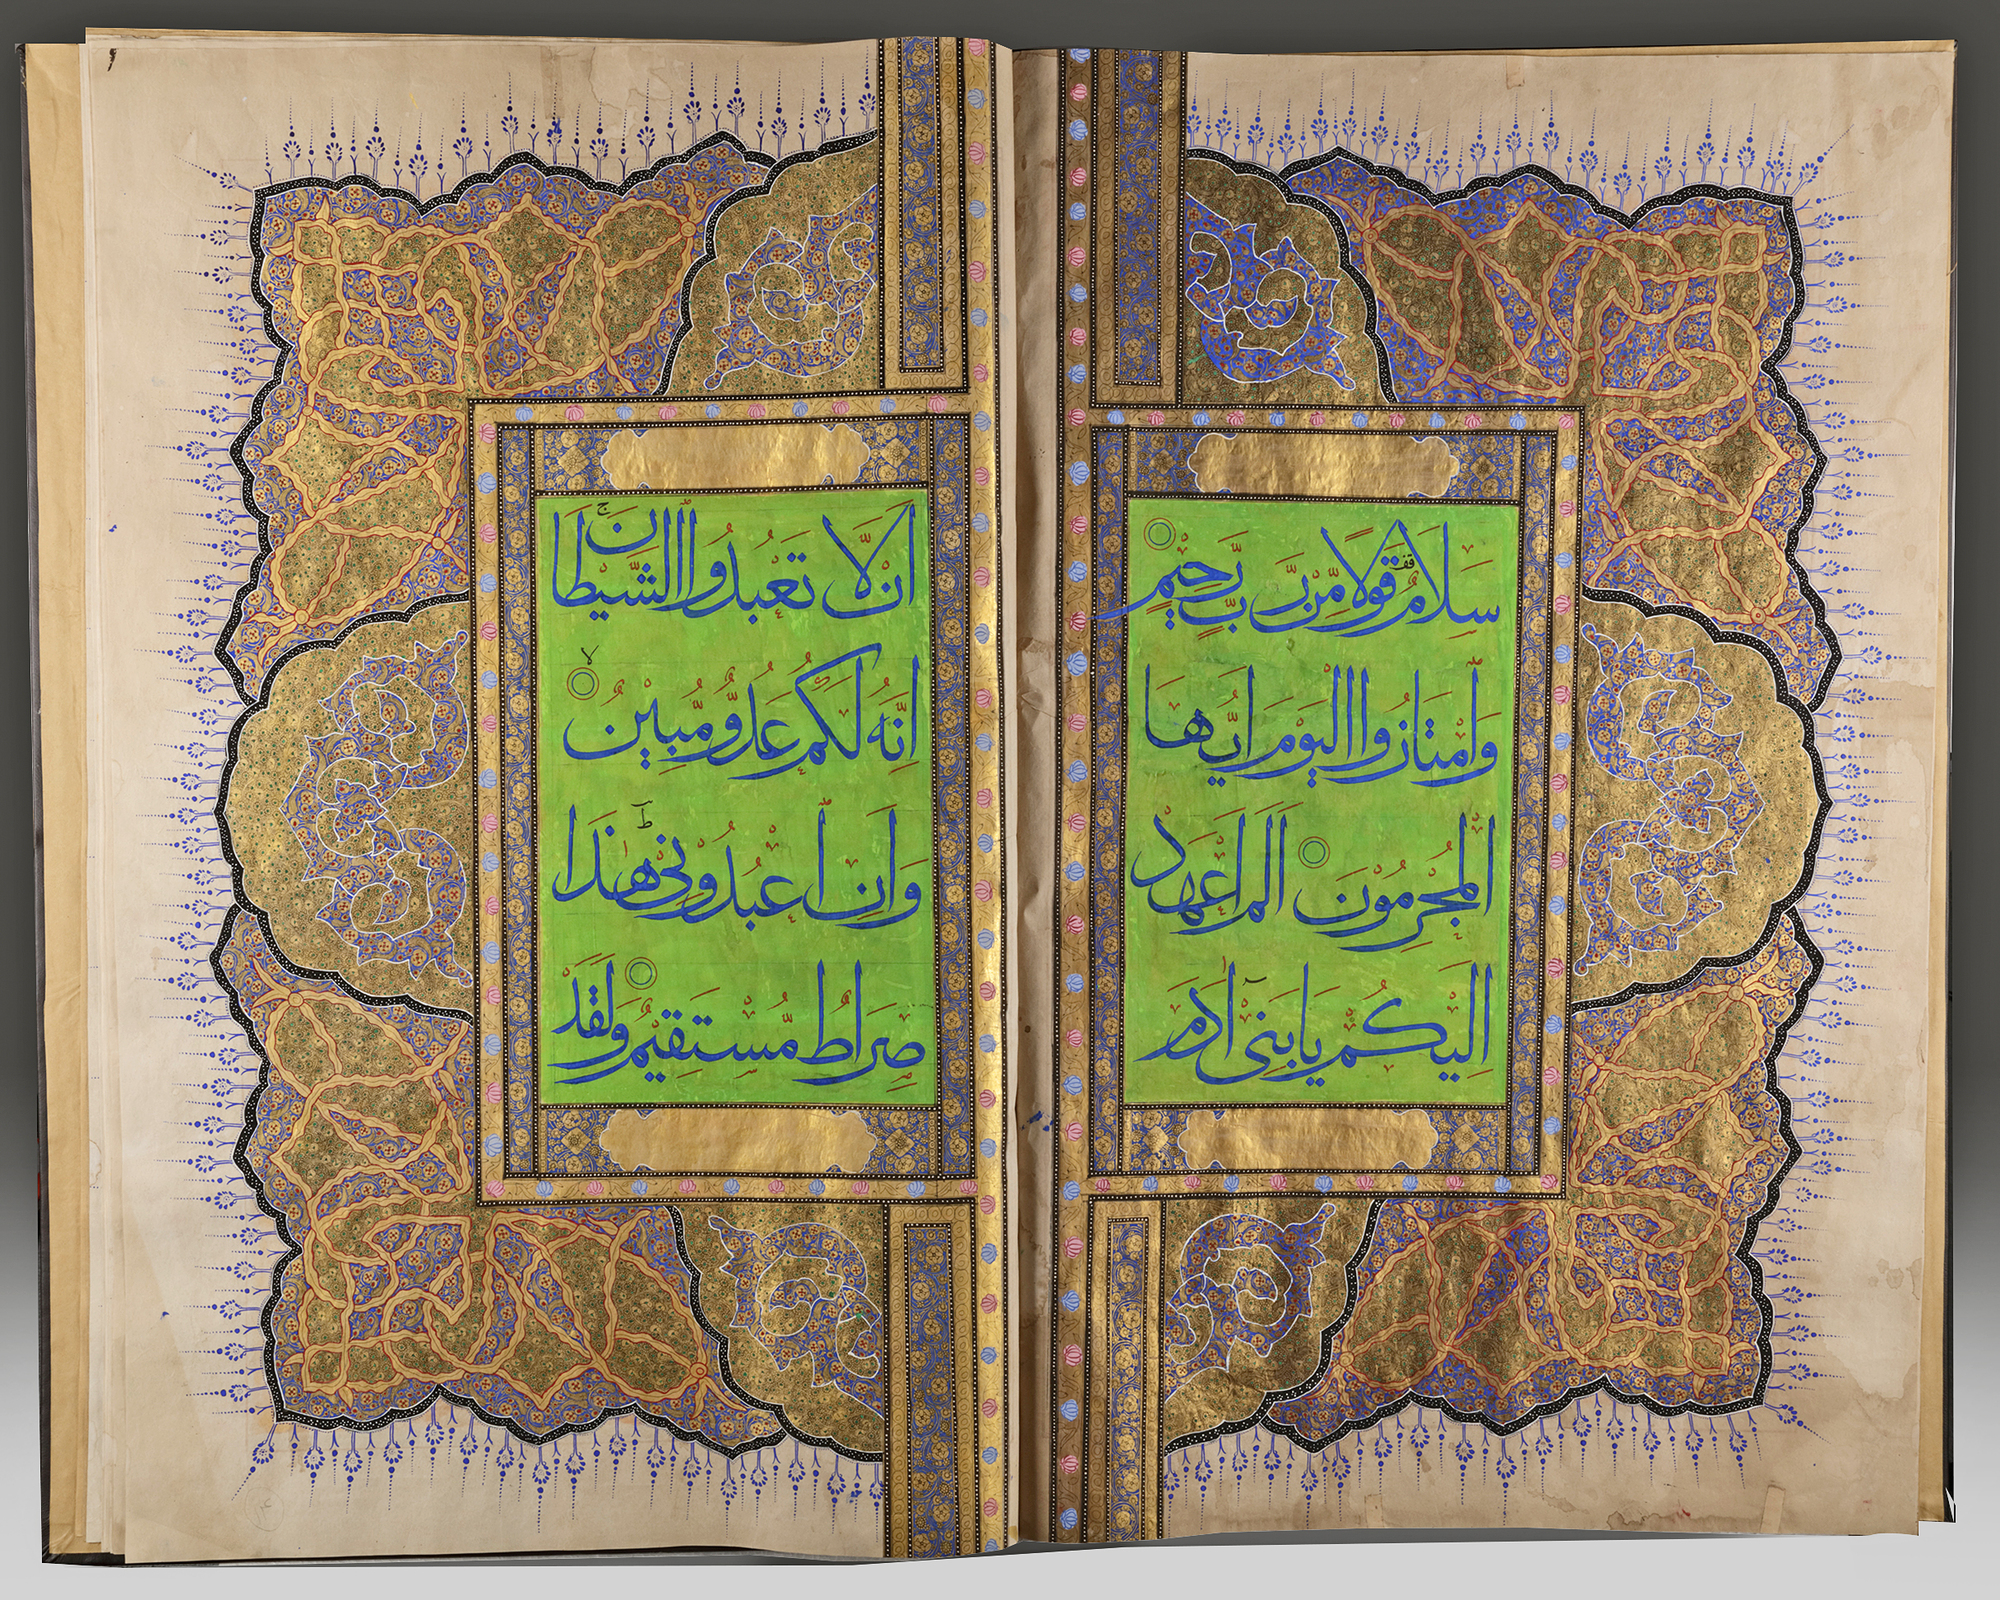 سَلَامٌ قَوْلًا مِّنْ رَّبٍّ رَّحِيْمٍ
وَامْتَازُوا الْيَوْمَ اَيُّهَا
الْمُجْرِمُوْنَ اَلَمْ اَعْهَدْ
اِلَيْكُمْ يَا بَنِىْ اٰدَمَ
اَنْ لَّا تَعْبُدُوا الشَّيْطَانَ ج
اِنَّهُ لَكُمْ عَدُوٌّ مُّبِيْنٌ لا
وَاَنِ اعْبُدُوْنِىْ هٰذَا
صِرَاطٌ مُّسْتَقِيْمٌ وَلَقَدْ